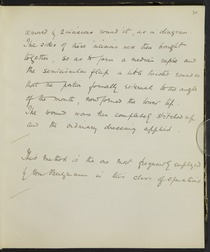 around & 2 incisions round it, as in diagram
The sides of these incisions were then brought
together, so as to form a median raphe and
the semicircular flap a little twisted round so
that the portion formerly external to the angle
of the mouth, now formed the lower lip.
The wound was then completely stitched up
and the ordinary dressing applied.
This method is the one most frequently employed
by Von Bergmann in this class of operations